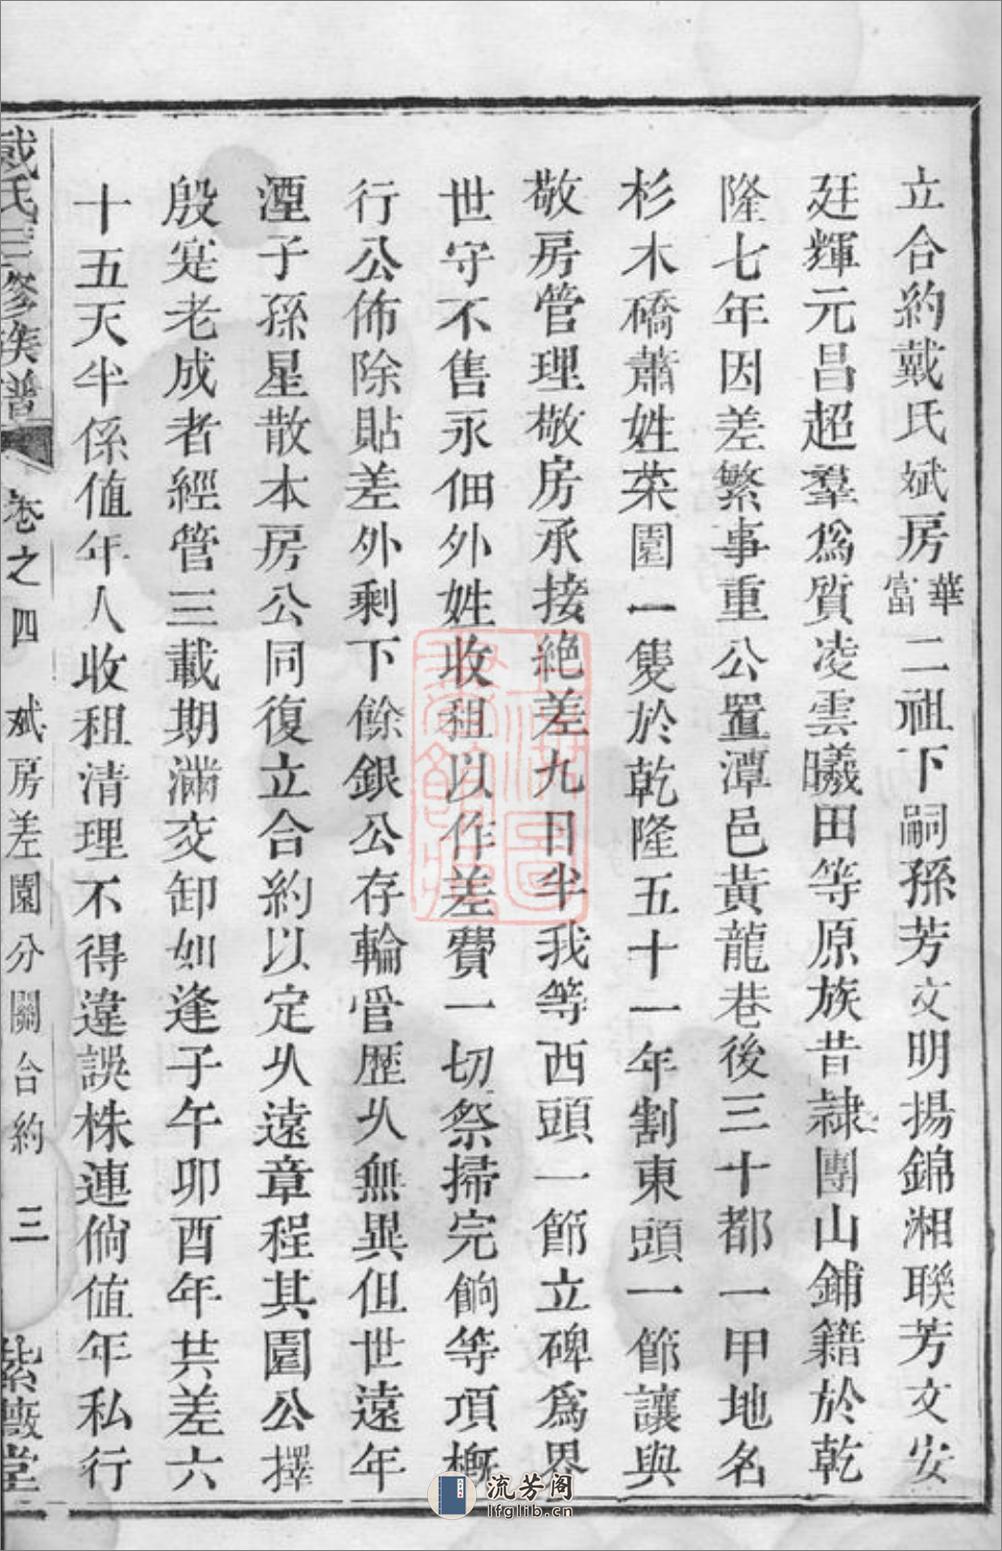 立合約戴氏斌房華富二祖下嗣孫芳文明揚錦湘聯芳文安
廷輝元昌超羣爲質凌雲曦田等原族昔隸團山鋪籍於乾
隆七年因差繁事重公置潭邑黃龍巷後三十都一甲地名
杉木磡蕭姓菜園一隻於乾隆五十一年割東頭一節讓與
敬房管理敬房承接絶差九日半我等西頭一節立碑爲界
世守不售永佃外姓收租以作差費一切祭掃完餉等項概
行公佈除貼差外剩下餘銀公存輪管歷久無異但世遠年
湮子孫星散本房公同復立合約以定久遠章程其園公擇
殷寔老成者經管三載期滿交卸如逢子午卯酉年共差六
十五天半係值年人收租清理不得違誤株連倘值年私行
戴氏三修族譜 卷之四 斌房差園分關合約 三 紫薇堂
流芳阁
lfglib.cn